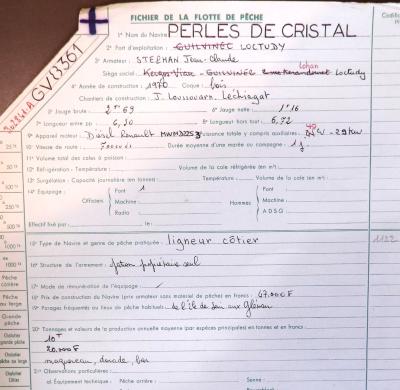 FICHIER DE LA FLOTTE DE PÊCHE
GV 13361
1° Nom du Navire PERLES DE CRISTAL
2° Port d'exploitation: GUILVINEC LOCTUDY
3° Armateur: STEPHAN Jean-Claude
Siège social: - GUILVINEC Loctudy
4° Année de construction: 1970 Coque: bois
Chantiers de construction: J. Léchiagat
5° Jauge brute: 2 Tx 69 6° Jauge nette: 1 Tx 16
7° Longueur entre pp: 6,30 8° Longueur hors tout: 6,72
9° Appareil moteur: Diesel Renault Puissance totale y compris auxiliaires: KW - 29 KW
10° Vitesse de route: 7 nœuds Durée moyenne d'une marée ou campagne: 1 j.
11° Volume total des cales à poisson:
12° Réfrigération: Température Volume de la cale réfrigérée (en m³):
13° Surgélation: Capacité journalière (en tonnes) Température Volume de cale (en m³):
14° Équipage: Officiers Pont 1 Machine Radio Hommes Pont Machine A.D.S.G.
Effectif fixé par: le:
15° Type de Navire et genre de pêche pratiquée: ligneur côtier
16° Structure de l'armement: patron propriétaire seul
17° Mode de rémunération de l'équipage:
18° Prix de construction du Navire (prix armateur sans matériel de pêche) en francs: 47.000 F
19° Parages fréquentés ou lieux de pêche habituels: de l'île de Sein aux Glénan
20° Tonnages et valeurs de la production annuelle moyenne (par espèces principales) en tonnes et en francs:
10 T
20.000 F
maquereau, dorade, bar
21° Observations particulières:
a) Équipement technique: Pêche arrière: Senne: